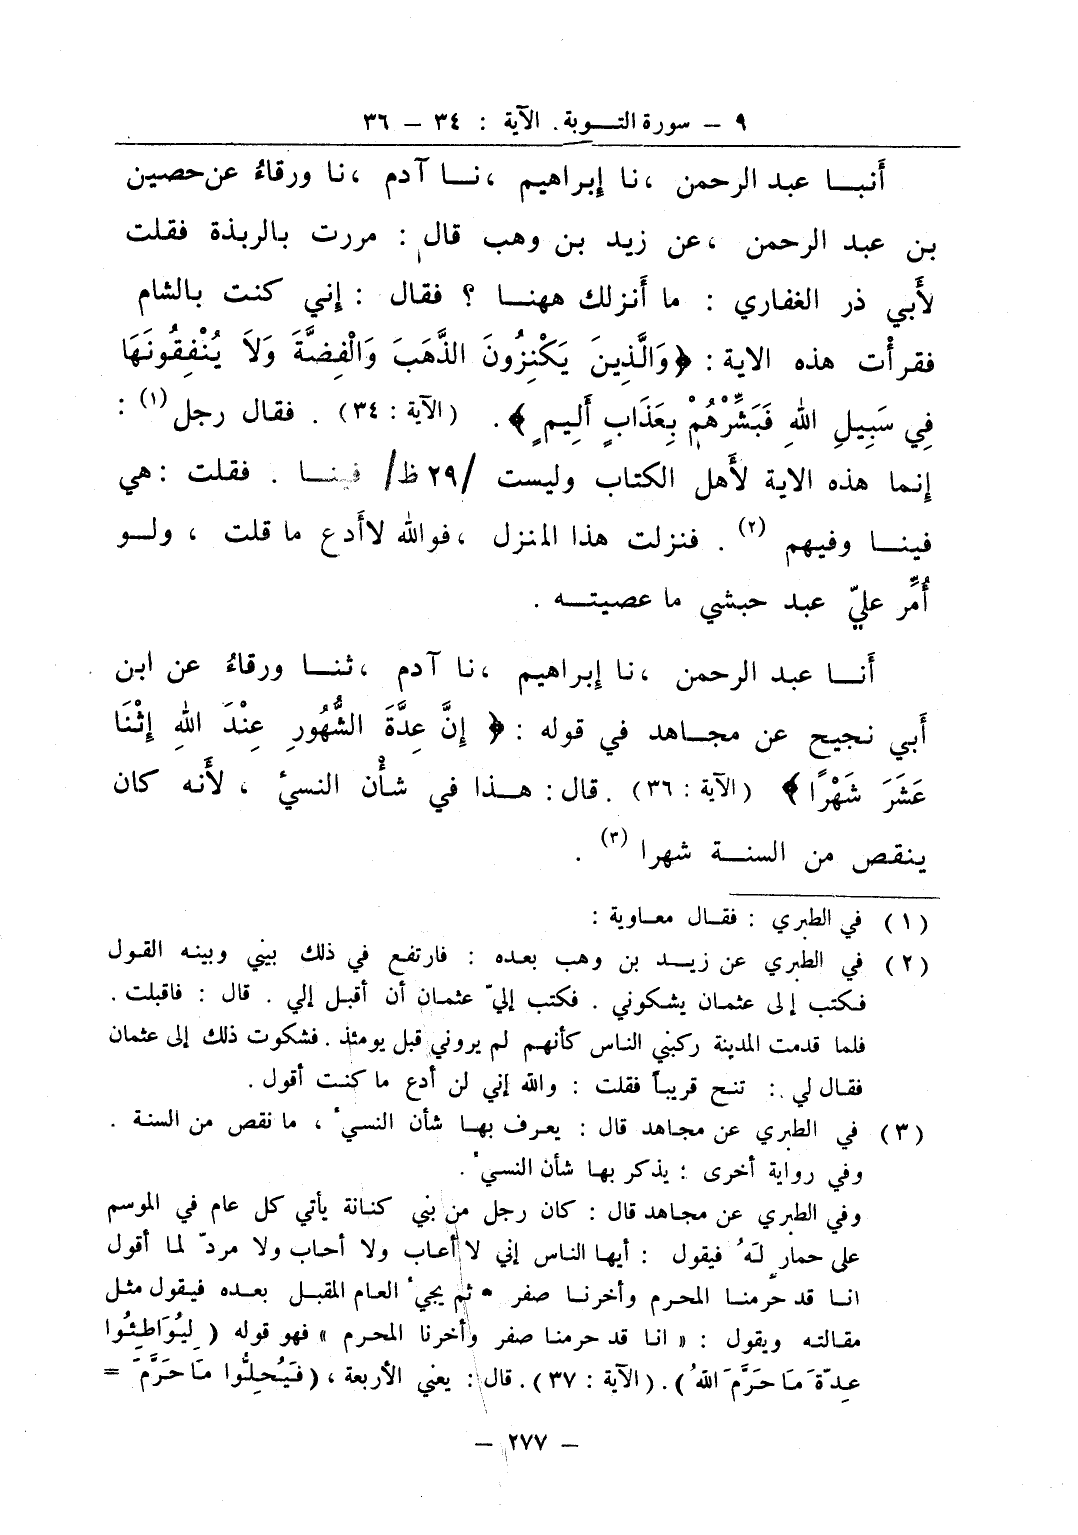 ٩ – سورة التوبة. الآية : ٣٤ – ٣٦
أنبا عبد الرحمن ، نا إبراهيم ، نا آدم ، نا ورقاءُ عن حصين
بن عبد الرحمن ، عن زيد بن وهب قال : مررت بالربذة فقلت
لأَبي ذر الغفاري : ما أَنزلك ههنا ؟ فقال : إني كنت بالشام
فقرأْت هذه الاية : ﴿ وَالَّذِينَ يَكْنِزُونَ الذَّهَبَ وَالْفِضَّةَ وَلَا يُنْفِقُونَهَا
فِي سَبِيلِ اللهِ فَبَشِّرْهُمْ بِعَذَابٍ أَلِيمٍ ﴾ . (الآية : ٣٤) . فقال رجل (١) :
إنما هذه الاية لأَهل الكتاب وليست /٢٩ ظ/ فينا . فقلت : هي
فينا وفيهم (٢) . فنزلت هذا المنزل ، فوالله لاأَدع ما قلت ، ولو
أُمِّر عليّ عبد حبشي ما عصيته .
أَنا عبد الرحمن ، نا إبراهيم ، نا آدم ، ثنا ورقاءُ عن ابن
أَبي نجيح عن مجاهد في قوله : ﴿ إِنَّ عِدَّةَ الشُّهُورِ عِنْدَ اللهِ إِثْنَا
عَشَرَ شَهْرًا ﴾ (الآية : ٣٦) . قال : هذا في شأْن النسيْ ، لأَنه كان
ينقص من السنة شهرا (٣) .
(١) في الطبري : فقال معاوية :
(٢) في الطبري عن زيد بن وهب بعده : فارتفع في ذلك بيني وبينه القول
فكتب إلى عثمان يشكوني . فكتب إليّ عثمان أن أقبل إلي . قال : فاقبلت .
فلما قدمت المدينة ركبني الناس كأنهم لم يروني قبل يومئذ . فشكوت ذلك إلى عثمان
فقال لي : تنح قريباً فقلت : والله إني لن أدع ما كنت أقول .
(٣) في الطبري عن مجاهد قال : يعرف بها شأن النسيْ ، ما نقص من السنة .
وفي رواية أخرى : يذكر بها شأن النسيْ .
وفي الطبري عن مجاهد قال : كان رجل من بني كنانة يأتي كل عام في الموسم
على حمار لَهُ فيقول : أيها الناس إني لا أعاب ولا أحاب ولا مردّ لما أقول
انا قد حرّمنا المحرم وأخرنا صفر » ثم يجيْ العام المقبل بعده فيقول مثل
مقالته ويقول : « انا قد حرمنا صفر وأخرنا المحرم » فهو قوله ( لِيُوَاطِئُوا
عِدّةَ مَا حَرَّمَ اللهُ ) . (الآية : ٣٧) . قال : يعني الأربعة ، ( فَيُحِلُّوا مَا حَرَّمَ =
– ٢٧٧ –